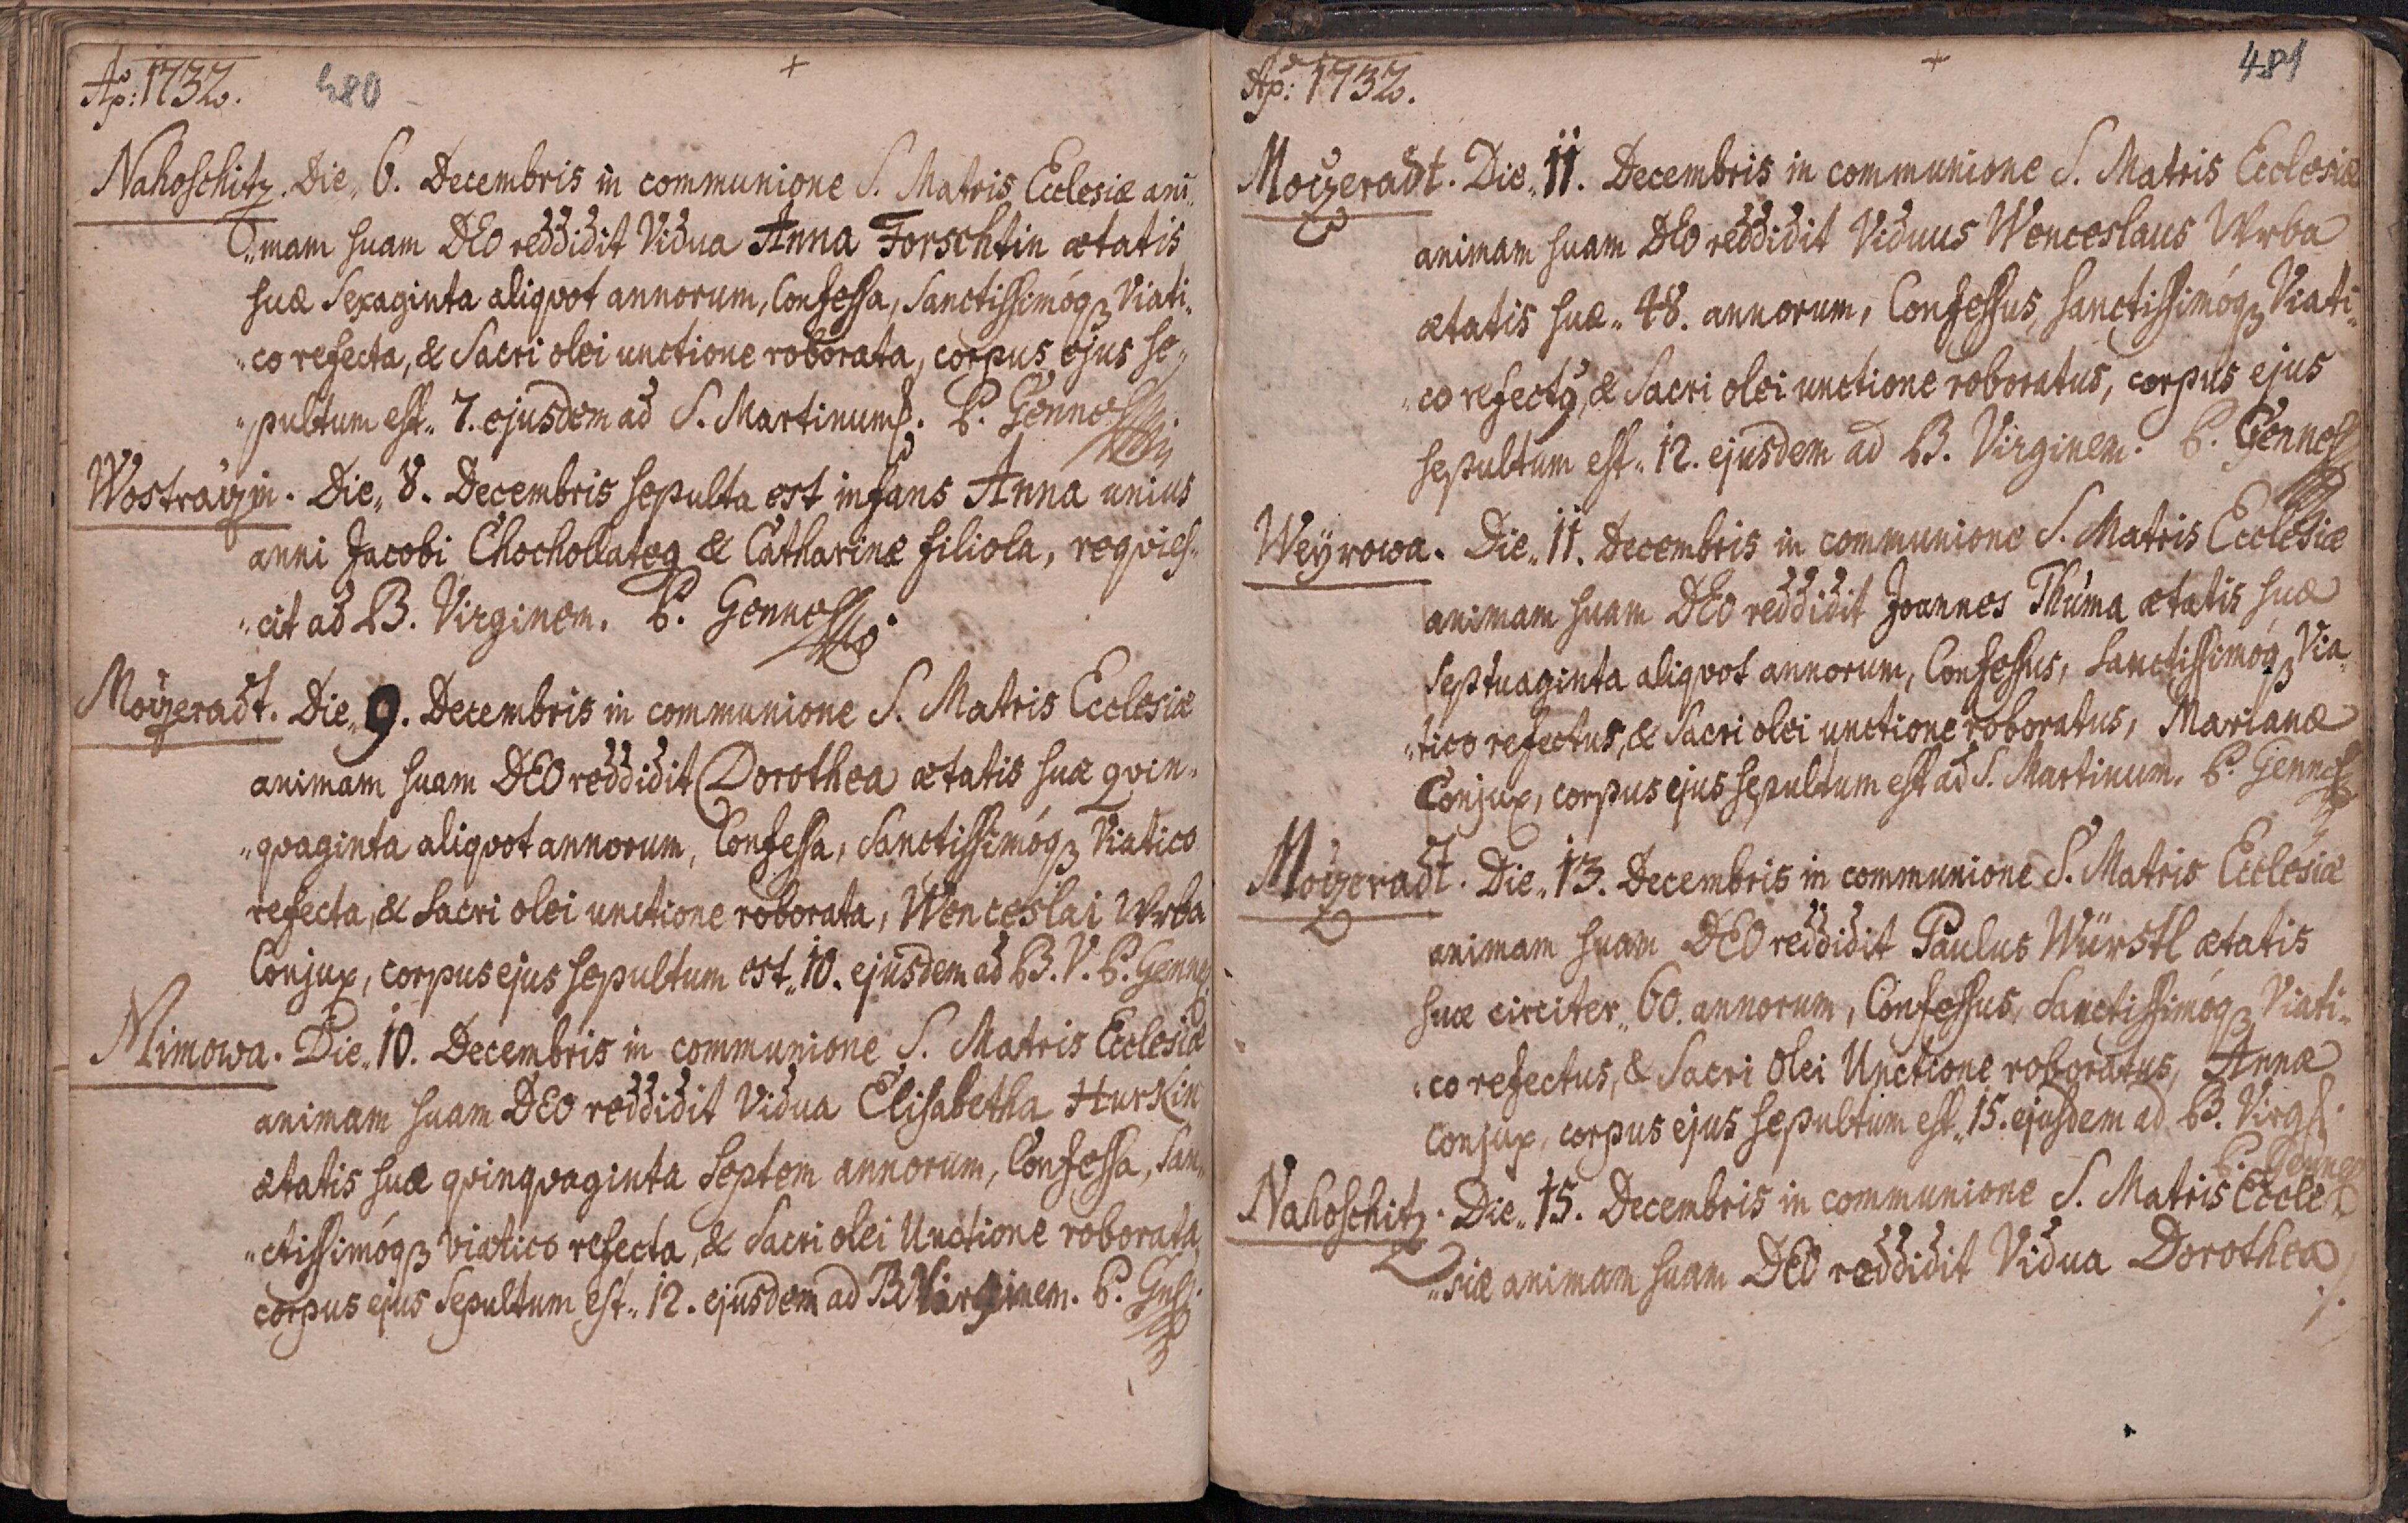 Aō: 1732. 480
+
Nahoschitz. Die„ 6. Decembris in communione S. Matris Ecclesiæ ani„
„mam suam DEO reddidit Vidua Anna Forschtin ætatis
suæ Sexaginta aliqvot annorum, Confessa, Sanctissimóqꝫ Viati„
„co refecta, & Sacri olei unctione roborata, corpus ejus se„
„pultum est„ 7. ejusdem ad S. Martinum. P. Gennes
Wostraczin. Die„ 8. Decembris sepulta est infans Anna unius
anni Jacobi Chochollateg & Catharinæ filiola, reqvies„
„cit ad B. Virginem. P. Gennes
Moyzeradt. Die„ 9. Decembris in communione S. Matris Ecclesiæ
animam suam DEO reddidit Dorothea ætatis suæ qvin„
„qvaginta aliqvot annorum, Confessa, Sanctissimóqꝫ Viatico
refecta, & Sacri olei unctione roborata, Wenceslai Wrba
Conjux, corpus ejus sepultum est„ 10. ejusdem ad B. V. P. Gennes
Mimowa. Die„ 10. Decembris in communione S. Matris Ecclesiæ
animam suam DEO reddidit Vidua Elisabetha Hurkin
ætatis suæ qvinqvaginta Septem annorum, Confessa, San„
„ctissimóqꝫ viatico refecta, & Sacri olei Unctione roborata
corpus ejus Sepultum est„ 12. ejusdem ad B Virginem. P. Gns
Aō: 1732.
+
481
Moyzeradt. Die„ 11. Decembris in communione S. Matris Ecclesiæ
animam suam DEO reddidit Viduus Wenceslaus Wrba
ætatis suæ„ 48. annorum, Confessus, sanctissimóqꝫ Viati„
„co refectꝯ, & Sacri olei unctione roboratus, corpus ejus
sepultum est„ 12. ejusdem ad B. Virginem. P. Gennes
Weyrowa. Die„ 11. Decembris in communione S. Matris Ecclesiæ
animam suam DEO reddidit Joannes Thuma ætatis suæ
Septuaginta aliqvot annorum, Confessus, Sanctissimóqꝫ Via„
„tico refectus, & Sacri olei unctione roboratus, Marianæ
Conjux, corpus ejus sepultum est ad S. Martinum. P. Gennes
Moyzeradt. Die„ 13. Decembris in communione S. Matris Ecclesiæ
animam suam DEO reddidit Paulus Würstl ætatis
suæ circiter„ 60. annorum, Confessus, Sanctissimóqꝫ Viati„
„co refectus, & Sacri olei Unctione roboratus, Annæ
Conjux, corpus ejus sepultum est„ 15. ejusdem ad B. Virg.
P. Gennes
Nahoschitz. Die„ 15. Decembris in communione S. Matris Eccle„
„siæ animam suam DEO reddidit Vidua Dorothea
./.